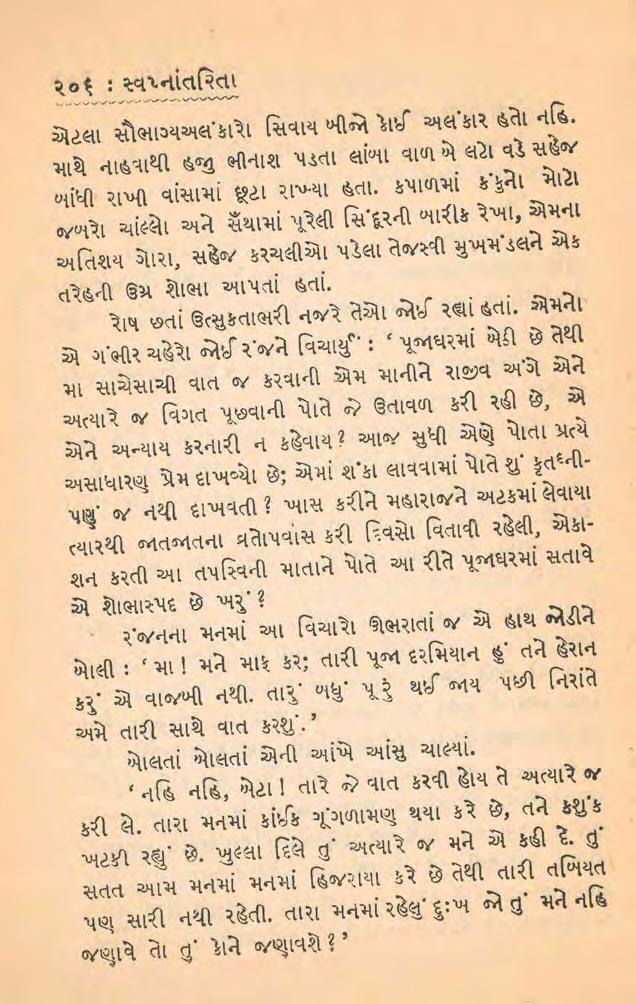 ૨૦૬ : સ્વપ્નાંતરિતા
એટલા સૌભાગ્યઅલંકારો સિવાય બીજો કોઈ અલંકાર હતો નહિ.
માથે નાહવાથી હજી ભીનાશ પડતા લાંબા વાળ બે લટો વડે સહેજ
બાંધી રાખી વાંસામાં છૂટા રાખ્યા હતા. કપાળમાં કંકુનો મોટો
જબરો ચાંલ્લો અને સેંથામાં પૂરેલી સિંદૂરની બારીક રેખા, એમના
અતિશય ગોરા, સહેજ કરચલીઓ પડેલા તેજસ્વી મુખમંડલને એક
તરેહની ઉગ્ર શોભા આપતાં હતાં.
રોષ છતાં ઉત્સુકતાભરી નજરે તેઓ જોઈ રહ્યાં હતાં. એમનો
એ ગંભીર ચહેરો જોઈ રંજને વિચાર્યું : ‘ પૂજાઘરમાં બેઠી છે તેથી
મા સાચેસાચી વાત જ કરવાની એમ માનીને રાજીવ અંગે એને
અત્યારે જ વિગત પૂછવાની પોતે જે ઉતાવળ કરી રહી છે, એ
એને અન્યાય કરનારી ન કહેવાય? આજ સુધી એણે પોતા પ્રત્યે
અસાધારણ પ્રેમ દાખવ્યો છે; એમાં શંકા લાવવામાં પોતે શું કૃતઘ્ની-
પણું જ નથી દાખવતી ? ખાસ કરીને મહારાજને અટકમાં લેવાયા
ત્યારથી જાતજાતના વ્રતોપવાસ કરી દિવસો વિતાવી રહેલી, એકા-
શન કરતી આ તપસ્વિની માતાને પોતે આ રીતે પૂજાઘરમાં સતાવે
એ શોભાસ્પદ છે ખરું ?
રંજનના મનમાં આ વિચારો ઊભરાતાં જ એ હાથ જોડીને
બોલી : ‘ મા ! મને માફ કર; તારી પૂજા દરમિયાન હું તને હેરાન
કરું એ વાજબી નથી. તારું બધું પૂરું થઈ જાય પછી નિરાંતે
અમે તારી સાથે વાત કરશું.’
બોલતાં બોલતાં એની આંખે આંસુ ચાલ્યાં.
‘ નહિ નહિ, બેટા ! તારે જે વાત કરવી હોય તે અત્યારે જ
કરી લે. તારા મનમાં કાંઈક ગૂંગળામણ થયા કરે છે, તને કશુંક
ખટકી રહ્યું છે. ખુલ્લા દિલે તું અત્યારે જ મને એ કહી દે. તું
સતત આમ મનમાં મનમાં હિજરાયા કરે છે તેથી તારી તબિયત
પણ સારી નથી રહેતી. તારા મનમાં રહેલું દુઃખ જો તું મને નહિ
જણાવે તો તું કોને જણાવશે ? ’